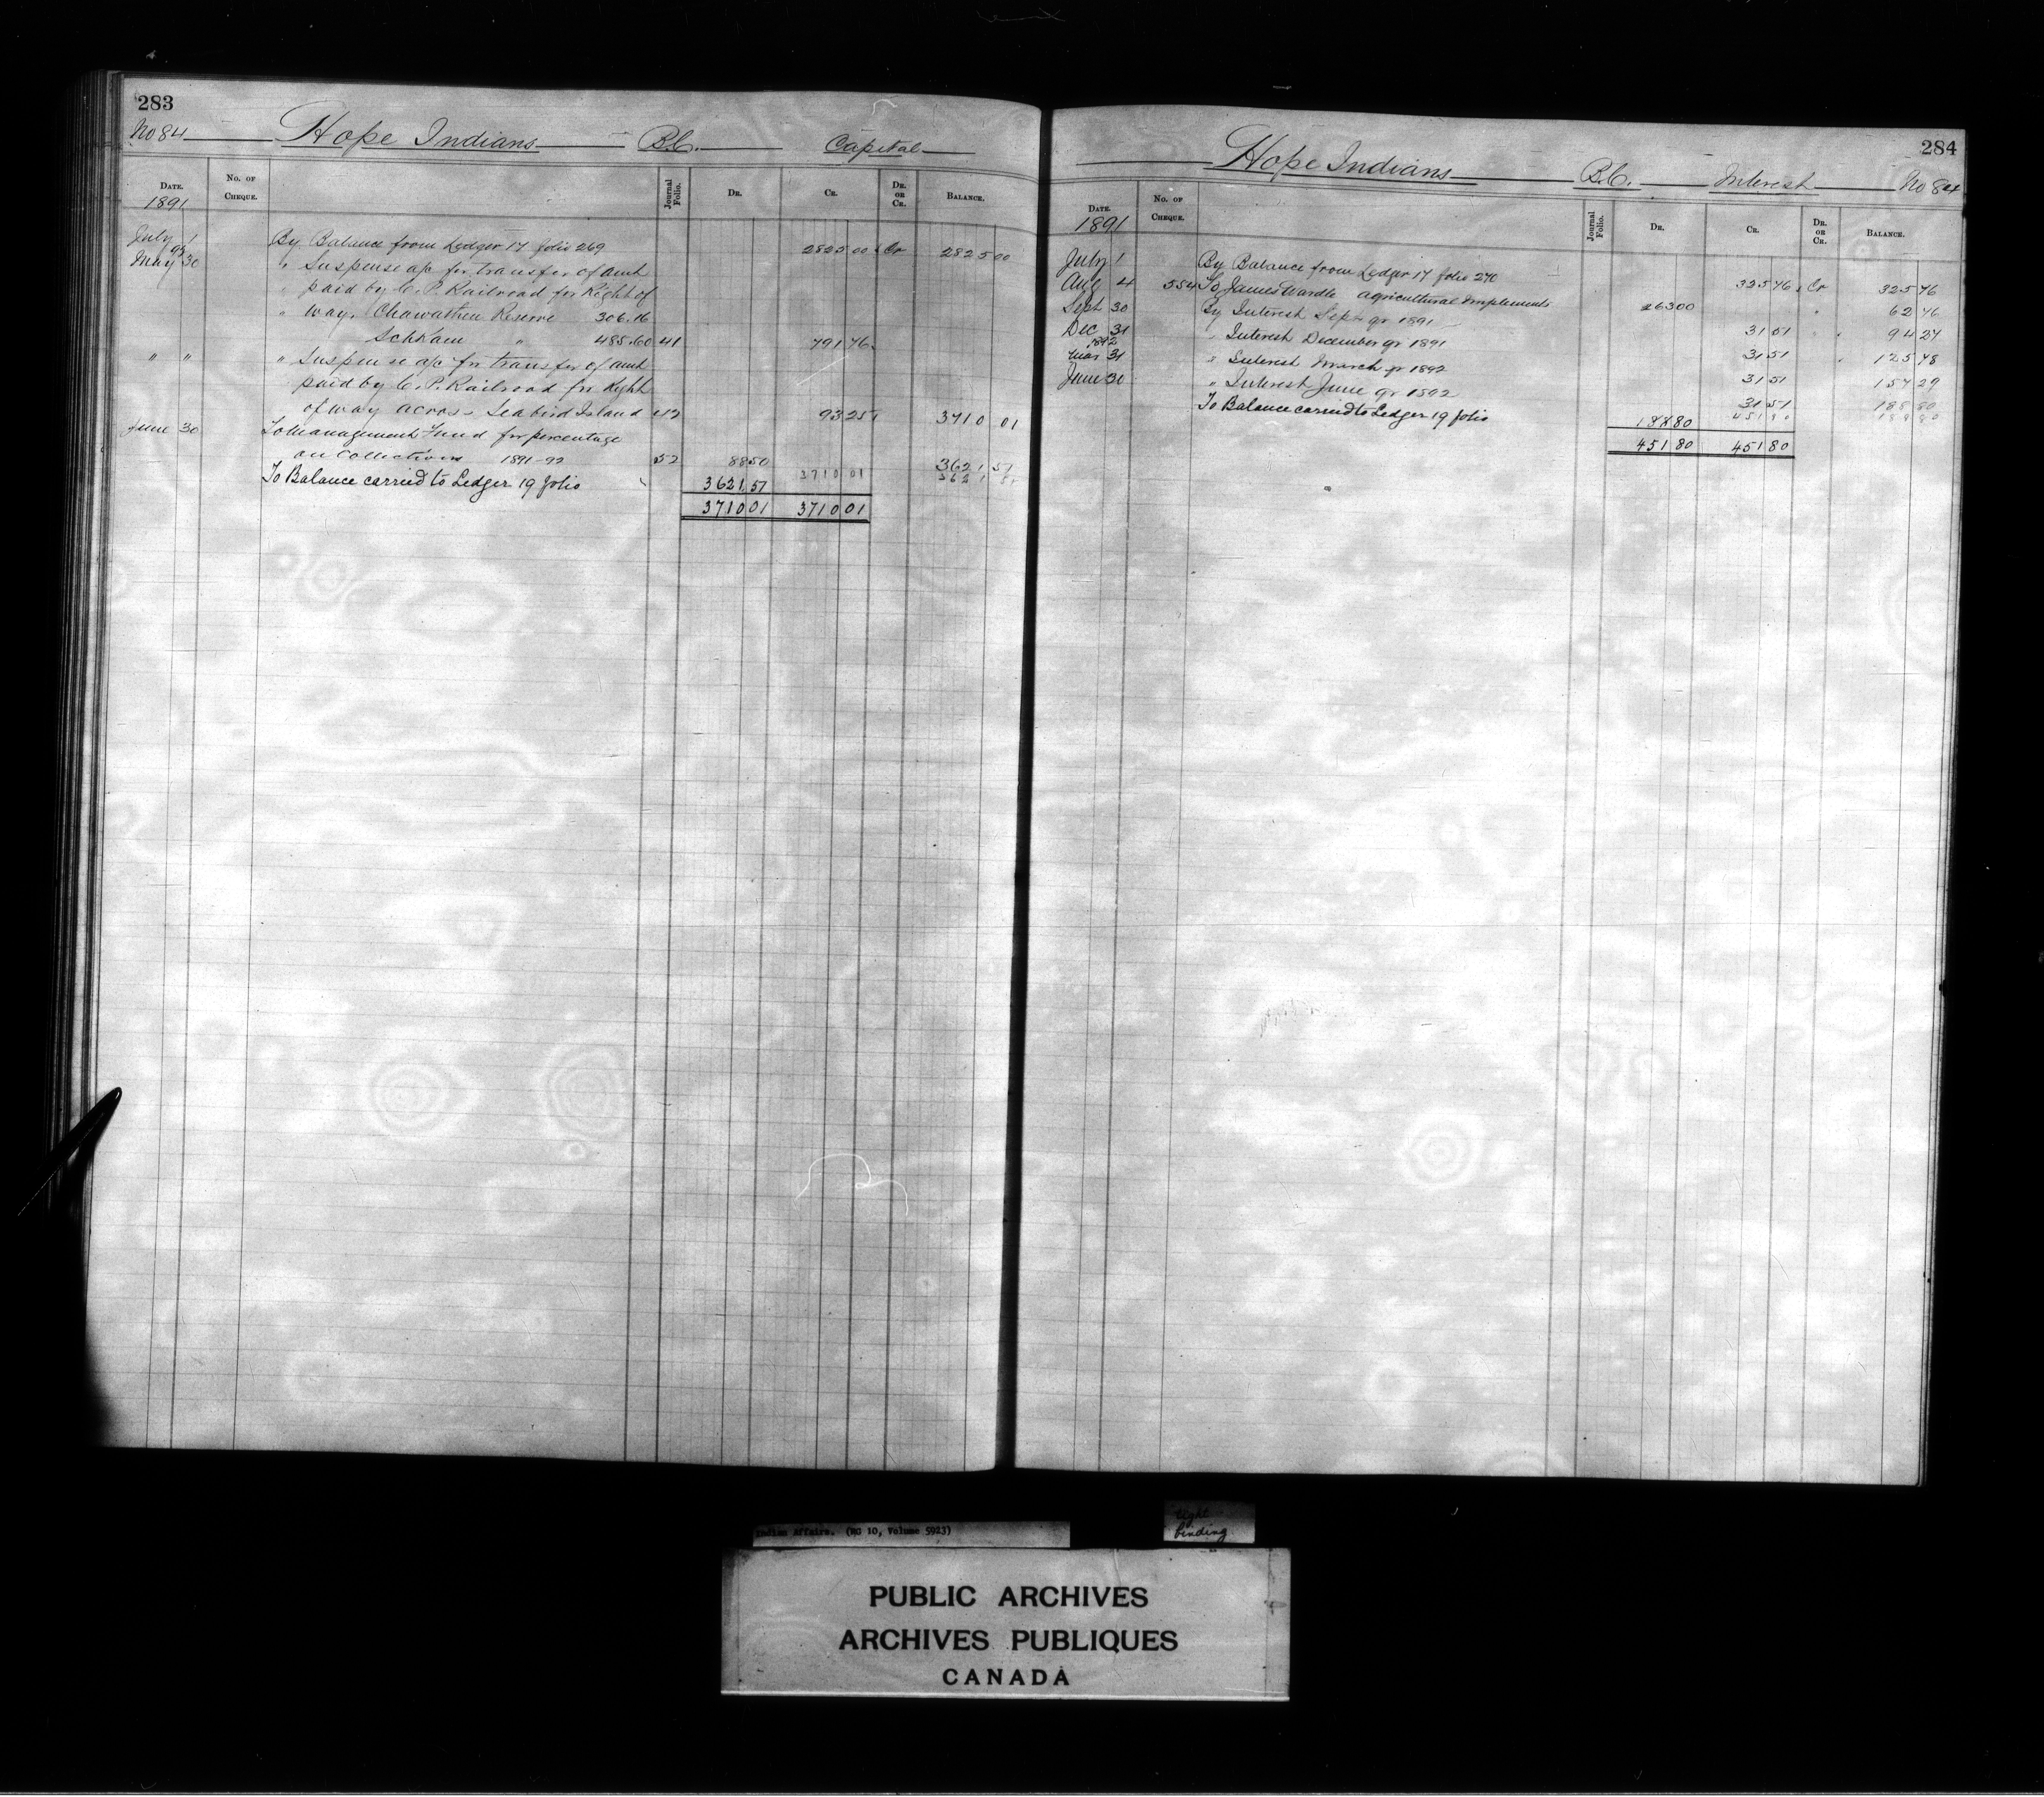 283
No 84 Hope Indians B.C. Capital
DATE. No. OF CHEQUE. Journal Folio. DR. CR. DR. OR CR. BALANCE.
1891
July 1 By Balance from Ledger 17 folio 269 2825 00 Cr 2825 00
92
May 30 " Suspense a/c for transfer of amt
" paid by C. P. Railroad for Right of
" way. Chawathen Reserve 306.16
Schkam " 485.60 41 791 76
" " " Suspense a/c for transfer of amt
paid by C. P. Railroad for Right
of way across Seabird Island 42 93 25 3710 01
June 30 To Management Fund for percentage
on Collections 1891-92 52 88 50 3621 51
To Balance carried to Ledger 19 folio 3621 51 3710 01
3710 01 3710 01
284
Hope Indians B.C. Interest No 84
DATE. No. OF CHEQUE. Journal Folio. DR. CR. DR. OR CR. BALANCE.
1891
July 1 By Balance from Ledger 17 folio 270 325 76 Cr 325 76
Aug 4 554 To James Wardle Agricultural Implements 263 00 " 62 76
Sept 30 By Interest Sept qr 1891 31 51 " 94 27
Dec 31 " Interest December qr 1891 31 51 " 125 78
1892
Mar 31 " Interest March qr 1892 31 51 157 29
June 30 " Interest June qr 1892 31 51 188 80
To Balance carried to Ledger 19 folio 188 80 451 80 188 80
451 80 451 80
Indian Affairs. (RG 10, Volume 5923)
tight
binding
PUBLIC ARCHIVES
ARCHIVES PUBLIQUES
CANADA